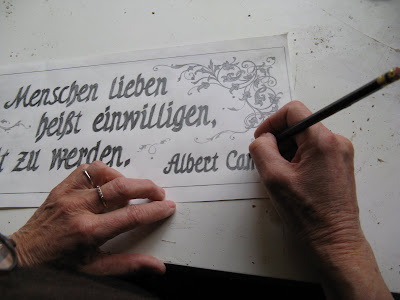 Menschen lieben
heißt einwilligen,
zu werden.
Albert